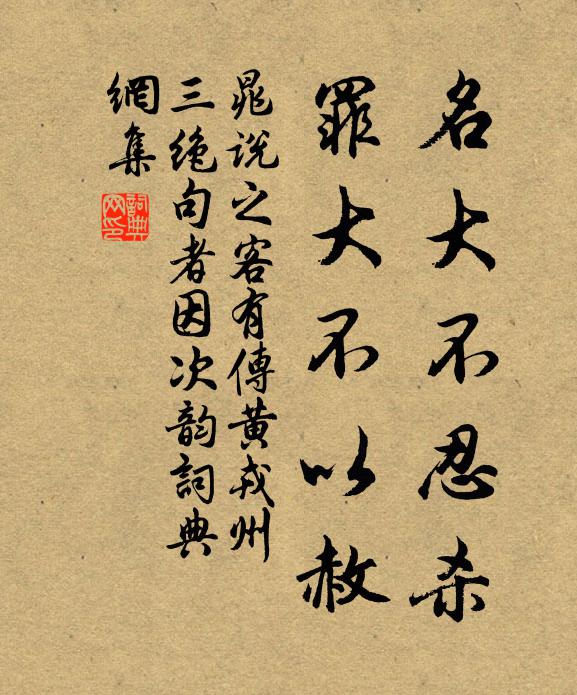 名大不忍杀
罪大不以赦
晁说之客有傳黄戎州
三绝句者因次韵詞典
網集
詞典网印